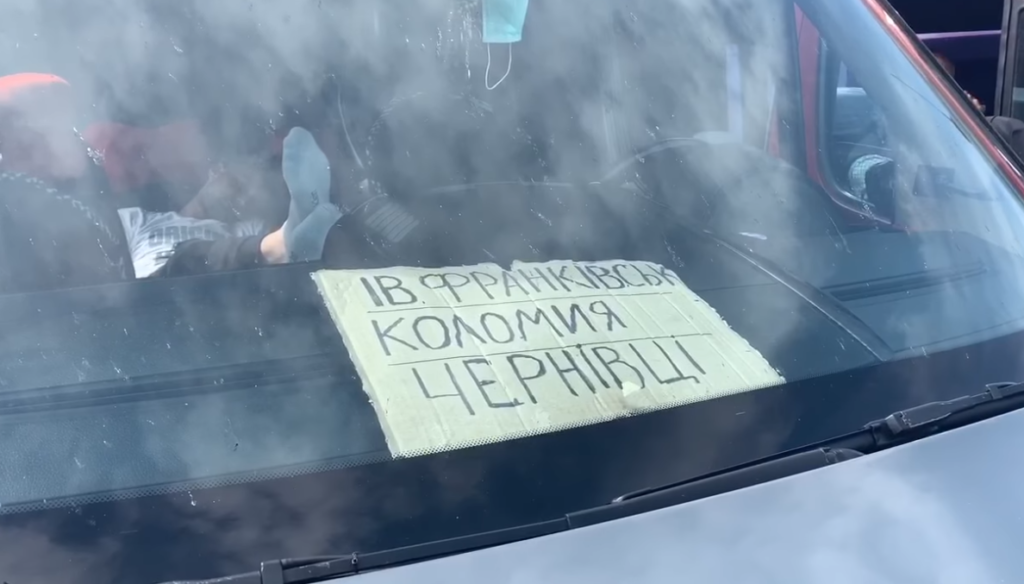 ІВ.ФРАНКІВСЬК
КОЛОМИЯ
ЧЕРНІВЦІ